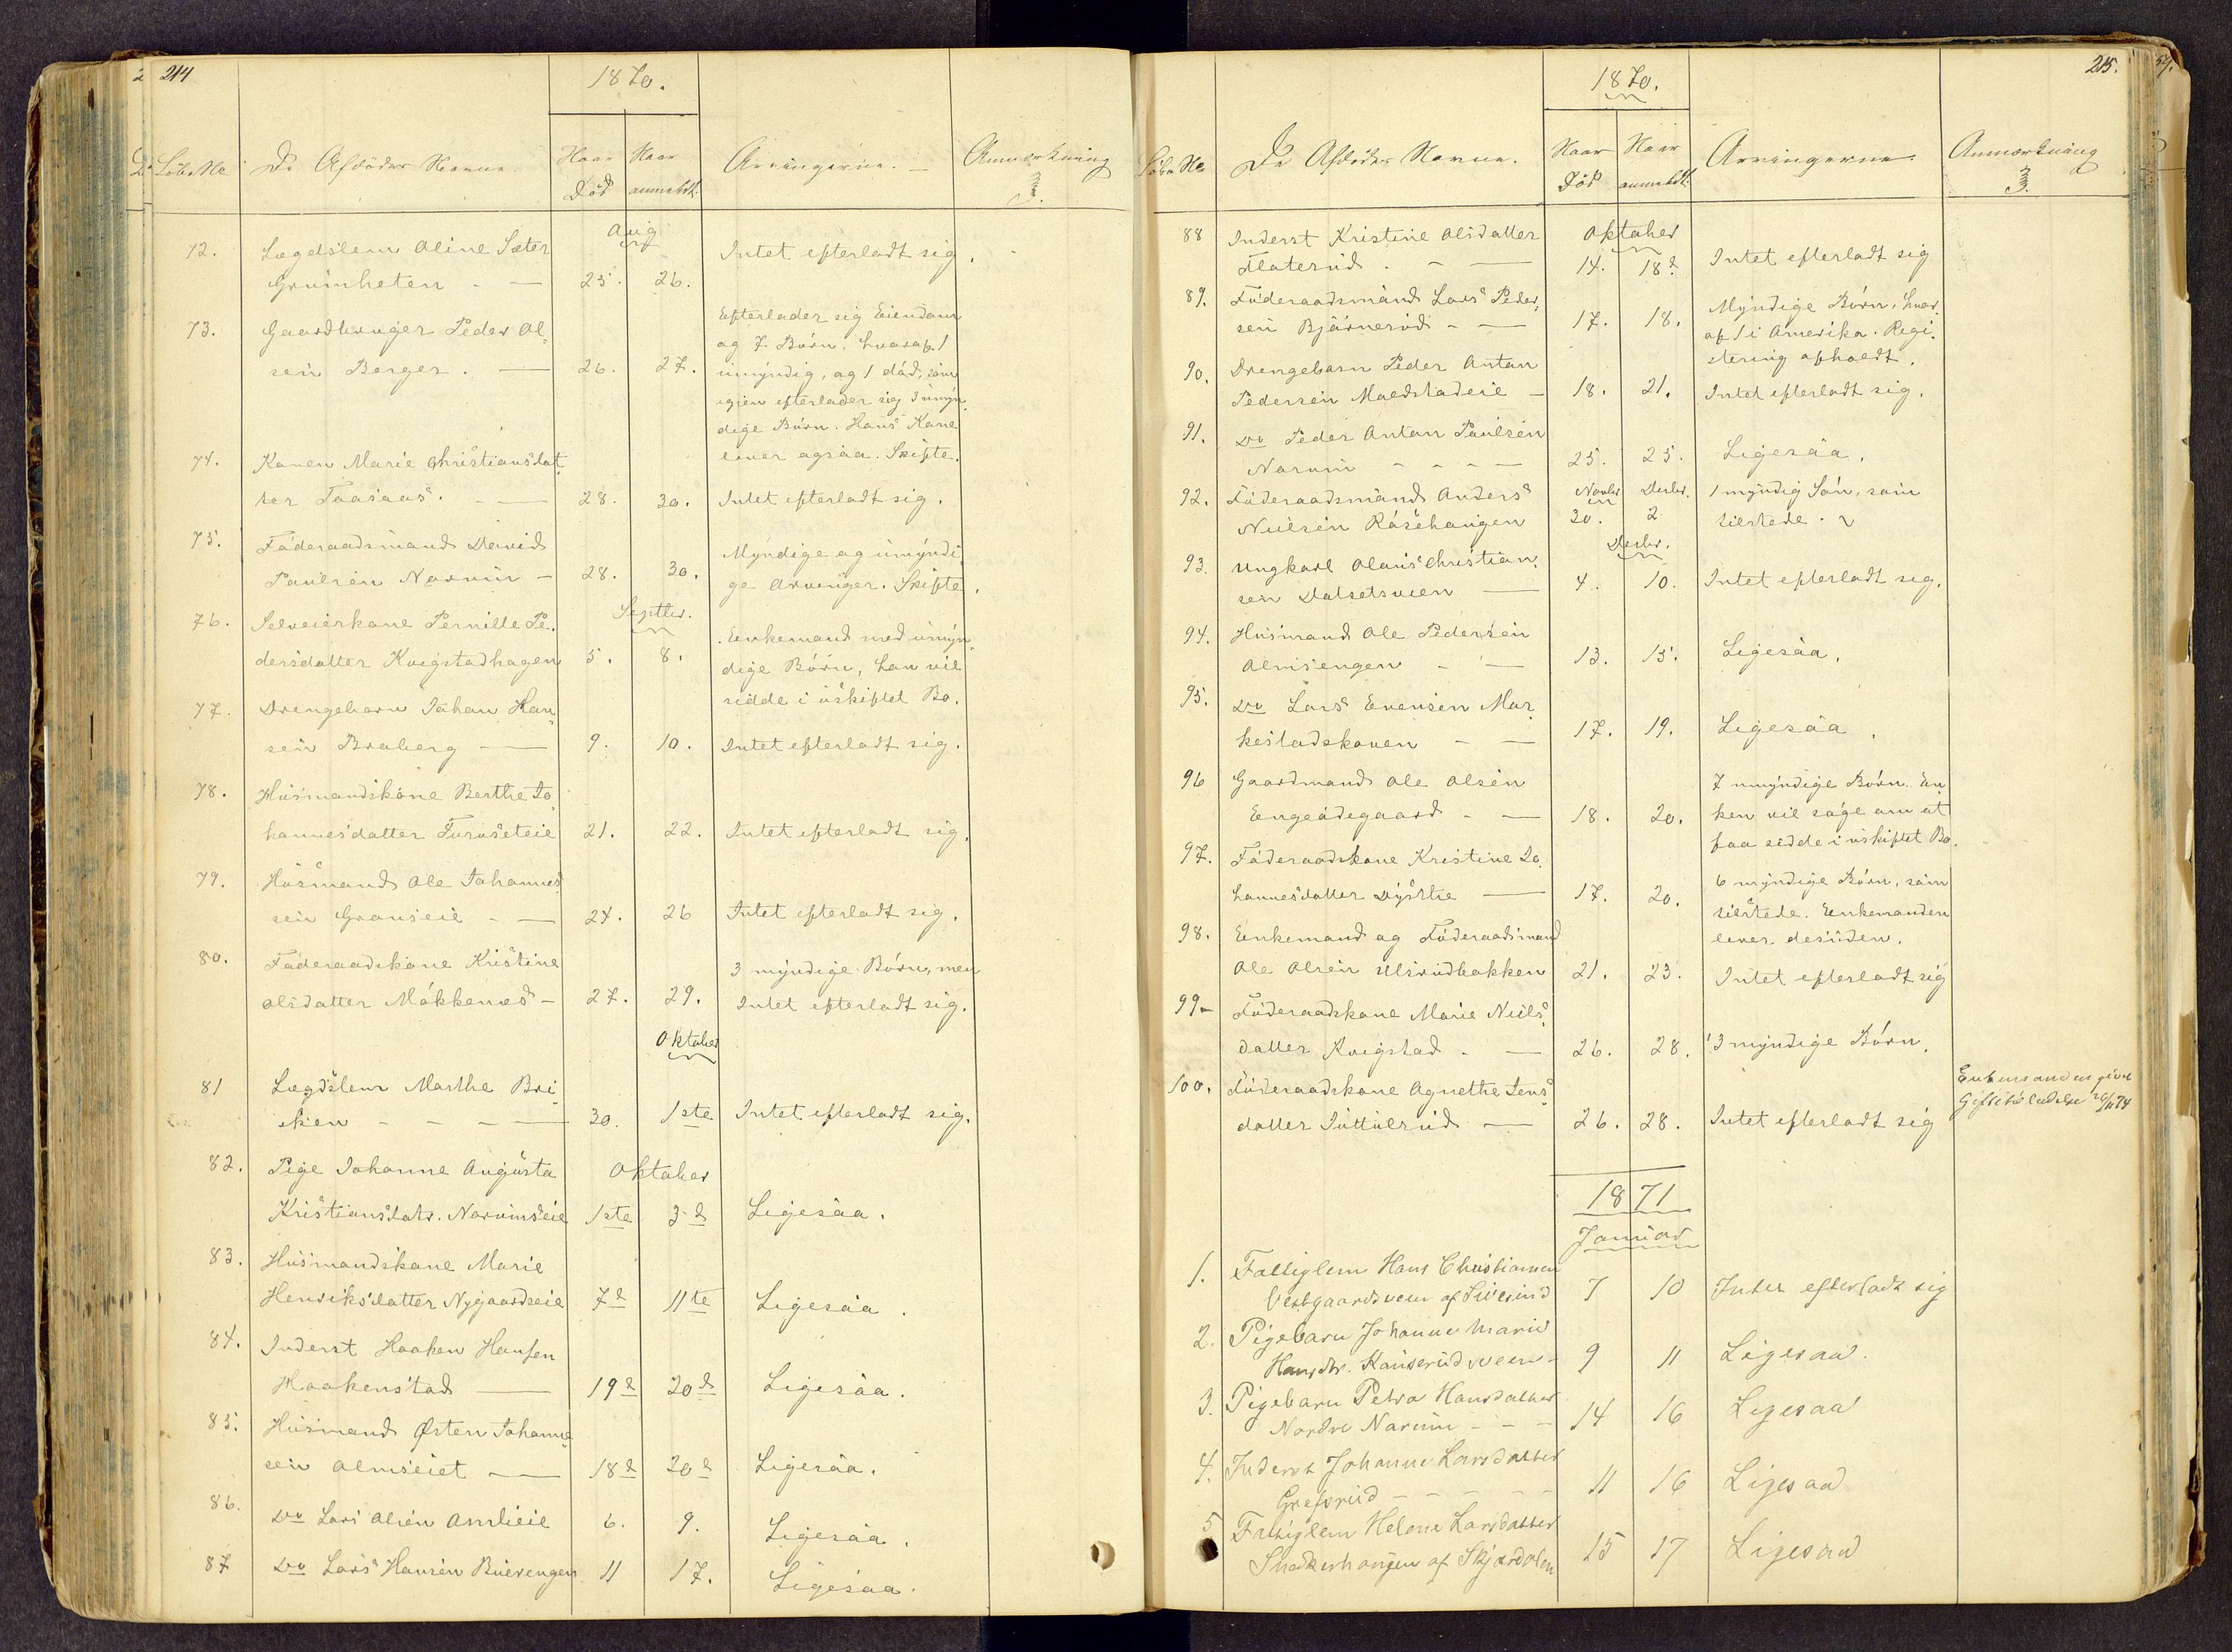 214
1870.
Löbe No De Afdödes Navne. Naar Död Naar anmeldt. Arvingerne. Anmærkning 3.
Aug
72. Lægdslem Oline Sæter
Gruinheten - — 25. 26. Intet efterladt sig.
73. Gaardbruger Peder Ol-
sen Berger. — 26. 27.
Efterlader sig Eiendom
og 7 Börn, hvoraf 1
umyndig, og 1 död, som
igjen efterlader sig 3 umyn-
dige Börn. Hans Kone
lever ogsaa. Skifte.
74. Karen Marie Christiansdat-
ter Taasaas. — 28. 30. Intet efterladt sig.
75. Föderaadsmand David
Paulsen Narum — 28. 30.
Myndige og umyndi-
ge Arvinger. Skifte.
Septbr.
76. Selveierkone Pernille Pe-
dersdatter Kvigstadhagen 5. 8.
Enkemand med umyn-
dige Börn, han vil
sidde i uskiftet Bo.
77. Drengebarn Johan Han-
sen Braberg — 9. 10. Intet efterladt sig.
78. Husmandskone Berthe Jo-
hannesdatter Furuseteie 21. 22. Intet efterladt sig.
79. Husmand Ole Johannes-
sen Granseie - — 24. 26 Intet efterladt sig.
80. Föderaadskone Kristine
Olsdatter Mökkenes — 27. 29.
3 myndige Börn, men
Intet efterladt sig.
Oktober
81 Lægdslem Marthe Bri-
sken - - - — 30. 1ste Intet efterladt sig.
Oktober
82. Pige Johanne Augusta
Kristiansdatr. Narumseie 1ste 3d Ligesaa.
83. Husmandskone Marie
Henriksdatter Nygaardseie 7d 11te Ligesaa.
84. Inderst Haaken Hansen
Haakenstad — 19d 20d Ligesaa.
85. Husmand Østen Johanne-
sen Almseiet — 18d 20d Ligesaa.
86. Do Lars Olsen Amlieie 6. 9. Ligesaa.
87 Do Lars Hansen Buerengen 11 17. Ligesaa.
215.
1870.
Löbe No De Afdödes Navne. Naar Död Naar anmeldt. Arvingerne. Anmærkning 3.
Oktober
88 Inderst Kristine Olsdatter
Flaterud. - — 14. 18d. Intet efterladt sig
89. Föderaadsmand Lars Peder-
sen Bjärnerud - — 17. 18.
Myndige Börn, hvor-
af 1 i Amerika. Regi-
strering afholdt.
90. Drengebarn Peder Antan
Pedersen Maedstadeie — 18. 21. Intet efterladt sig.
91. Do Peder Antan Paulsen
Narum - - - — 25. 25. Ligesaa.
92. Föderaadsmand Anders Novbr Decbr. 1 myndig Sön, som
Nielsen Råsehaugen 30. 2 tilstede.
Decbr.
93. Ungkarl Olaus Christian-
sen Dalsetsveen — 4. 10. Intet efterladt sig.
94. Husmand Ole Pedersen
Almsengen - — 13. 15. Ligesaa.
95. Do Lars Evensen Mar-
kestadskoven - — 17. 19. Ligesaa.
96 Gaardmand Ole Olsen
Engeödegaard - — 18. 20.
7 umyndige Börn. En-
ken vil söge om at
faa sidde i uskiftet Bo.
97. Föderaadskone Kristine Jo-
hannesdatter Dÿsthe — 17. 20.
6 myndige Börn, som
tilstede. Enkemanden
lever desuden.
98. Enkemand og Föderaadsmand
Ole Olsen Ulsrudbakken 21. 23. Intet efterladt sig
99- Föderaadskone Marie Niels-
datter Kvigstad. — 26. 28. 3 myndige Börn.
100. Föderaadskone Agnethe Jens-
datter Juttulrud — 26. 28. Intet efterladt sig
1871
Januar
1. Fattiglem Hans Christiansen
Vestgaardsveen af Siverud 7 10 Intet efterladt sig
2. Pigebarn Johanne Marie
Hansdtr. Kauserudveen - 9 11 Ligesaa.
3. Pigebarn Petra Hansdatter
Nordre Narum - - - 14 16 Ligesaa
4. Inderst Johanne Larsdatter
Grefsrud - - - - 11 16 Ligesaa
5 Fattiglem Helene Larsdatter
Snedkerhaugen af Skjærdalen 15 17 Ligesaa